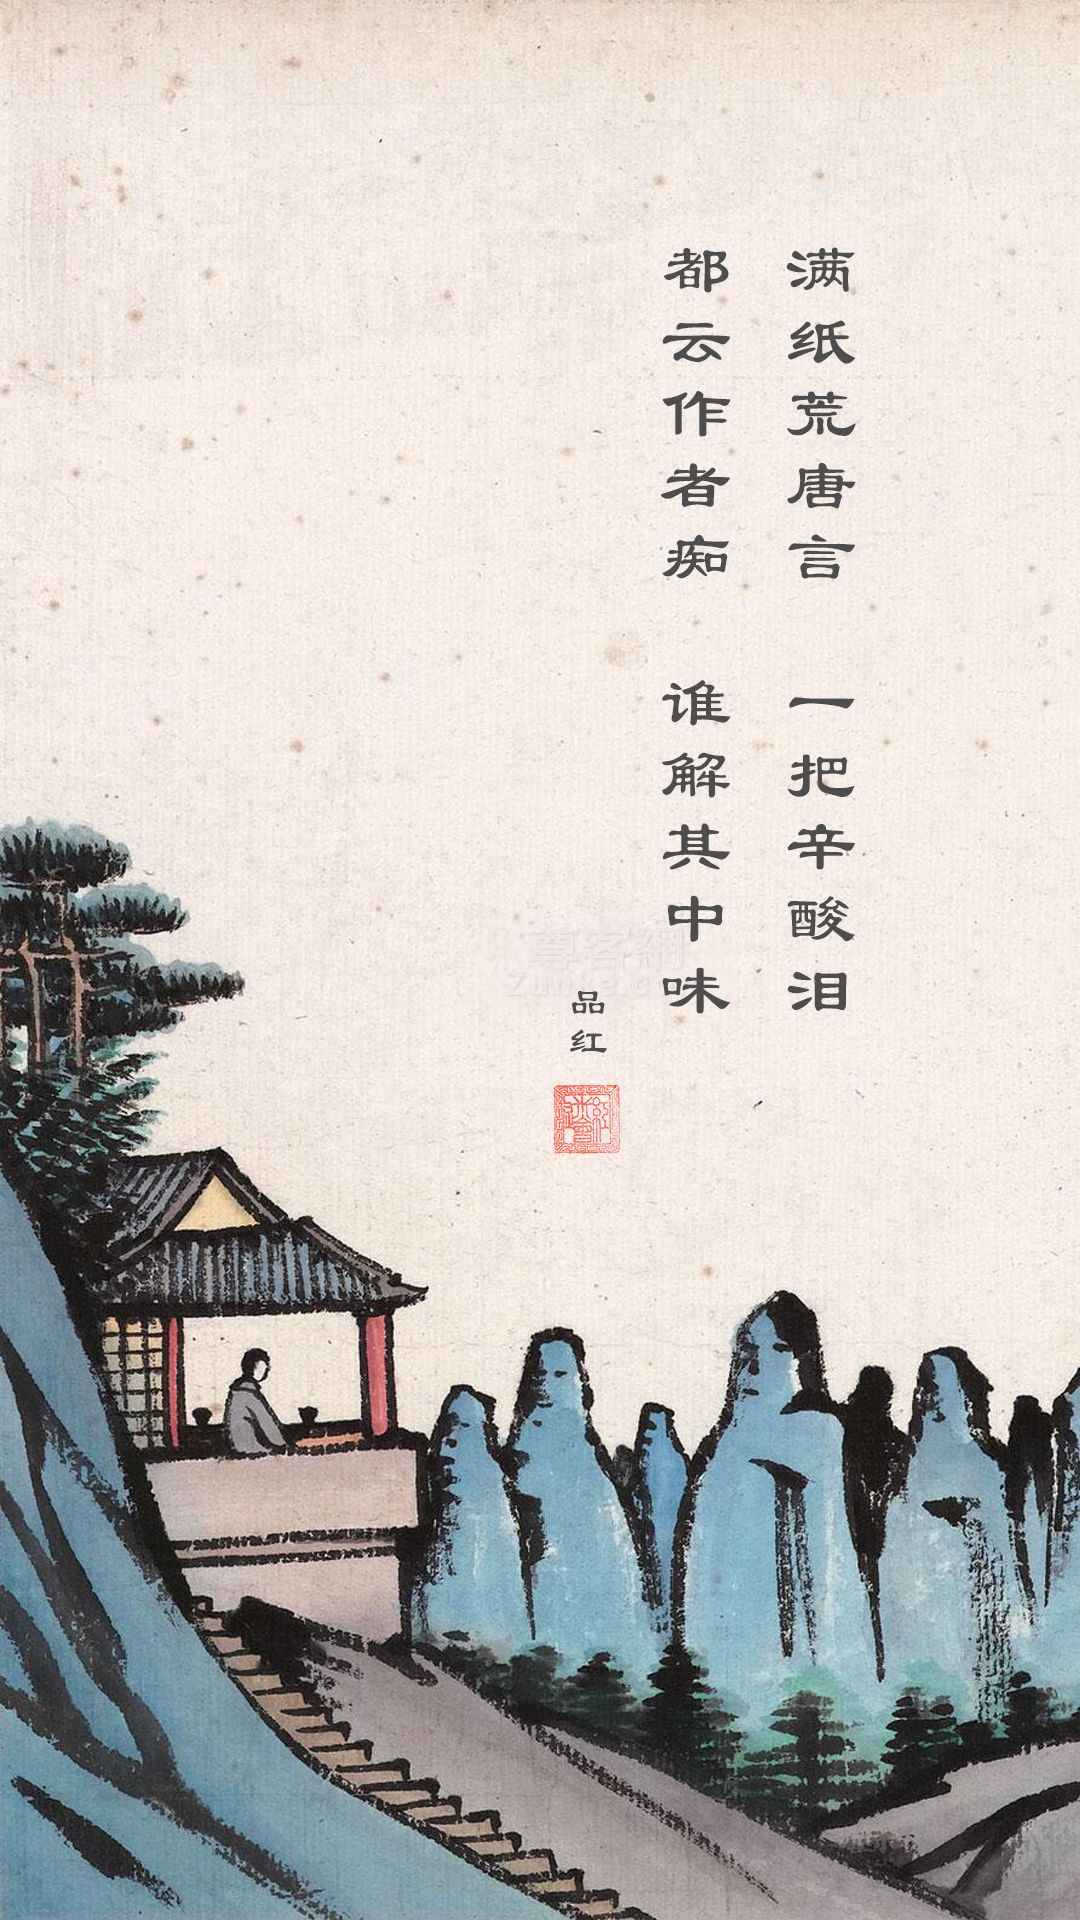 满纸荒唐言 一把辛酸泪
都云作者痴 谁解其中味
品红
尊客網